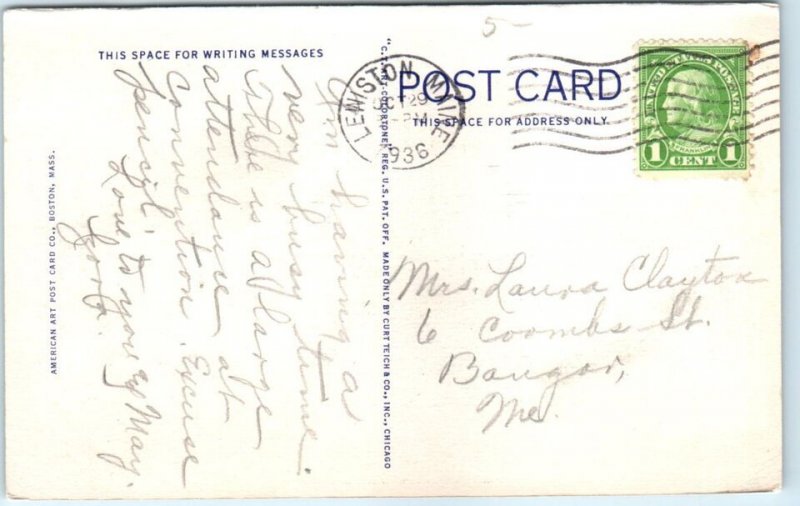 5-
THIS SPACE FOR WRITING MESSAGES
POST CARD
THIS SPACE FOR ADDRESS ONLY.
LEWISTON MAINE
29
PM
1936
UNITED STATES POSTAGE
FRANKLIN
1 CENT 1
Am having a
very busy time.
There is a large
attendance at
convention. Excuse
pencil.
Love to you & May.
Mrs. Laura Clayton
6 Coombs St.
Bangor,
Me.
AMERICAN ART POST CARD CO., BOSTON, MASS.
"C.T. ART-COLORTONE" REG. U.S. PAT. OFF. MADE ONLY BY CURT TEICH & CO., INC., CHICAGO